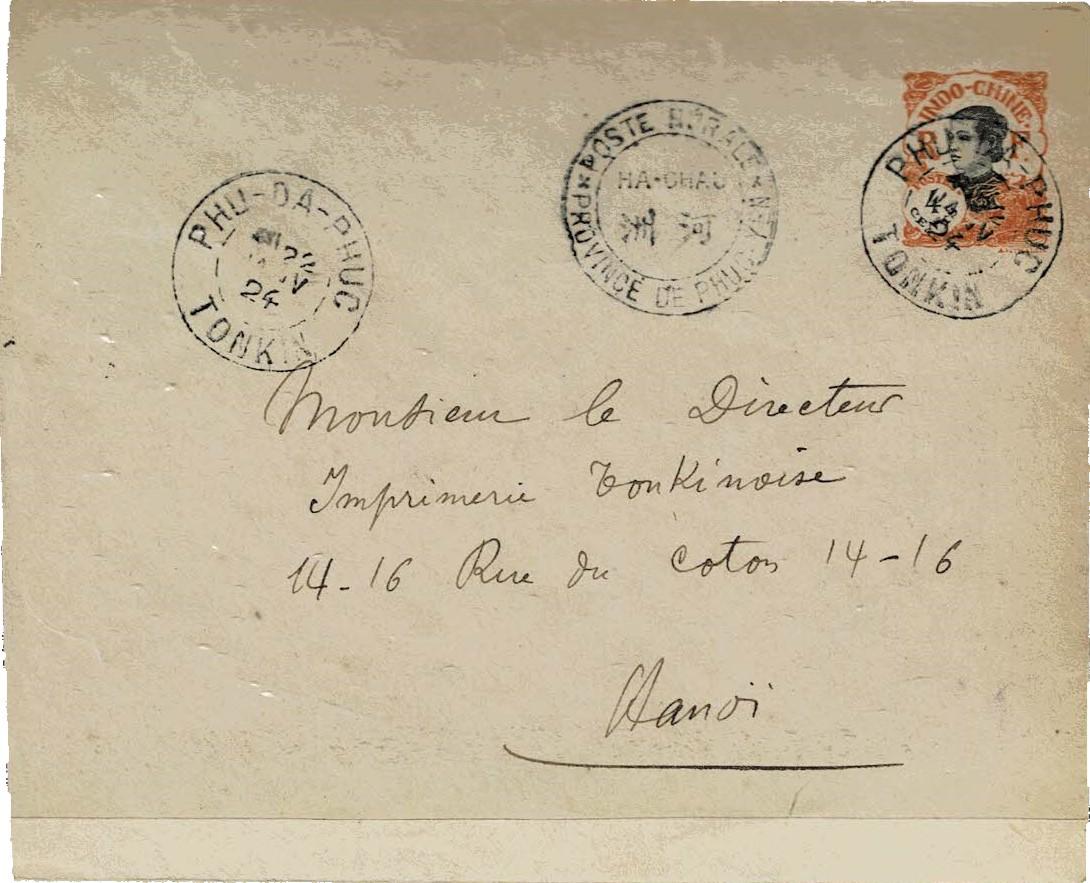 PHU-DA-PHUC
24
TONKIN
POSTE RURALE
HA-CHAU
洲 河
PROVINCE DE PHUC-YEN
INDO-CHINE
R F
PHU-DA-PHUC
24
TONKIN
Monsieur le Directeur
Imprimerie Tonkinoise
14-16 Rue du Coton 14-16
Hanoï